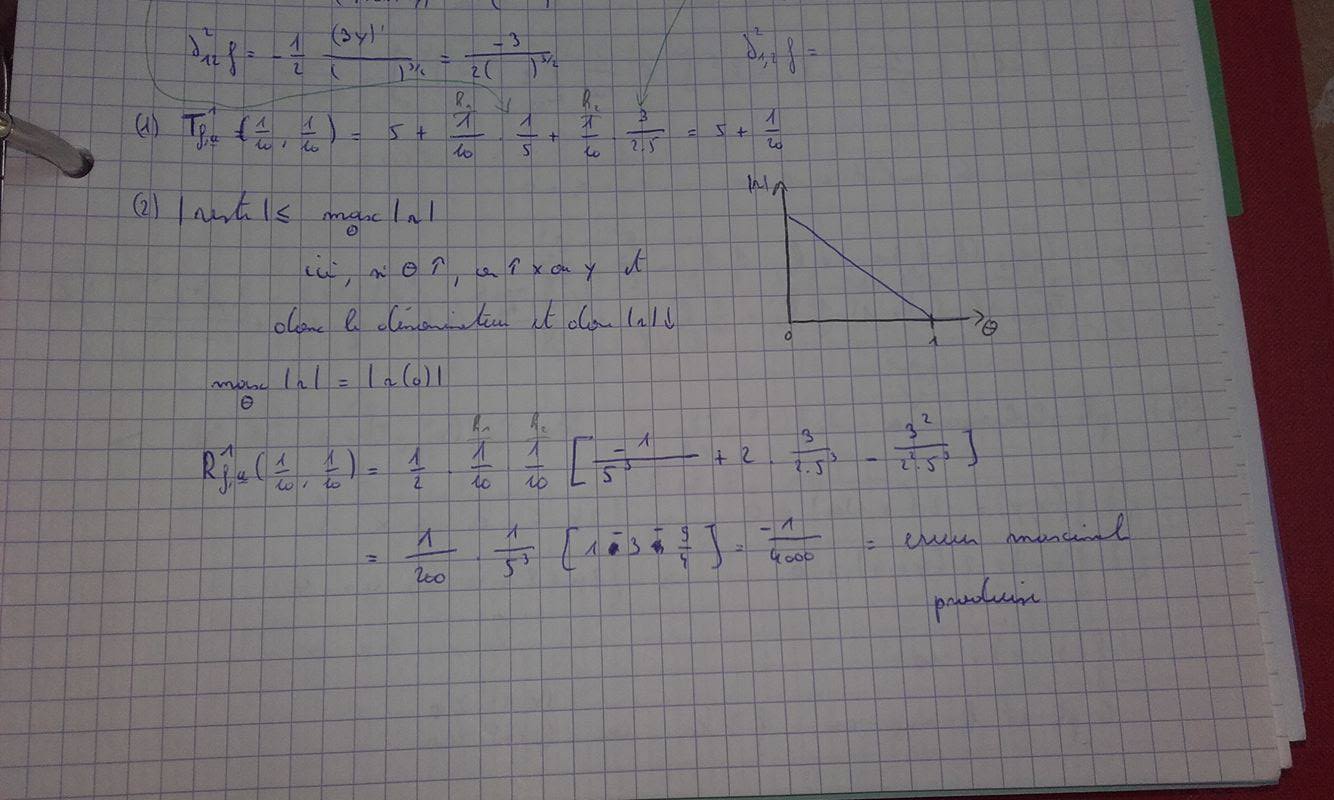 ∂²₁₂ f = -1/2 (3y)'/( )^3/2 = -3/2( )^3/2
∂²₁,₂ f =
(1) T¹f,a (1/10, 1/10) = 5 + 1/10 · 1/5 + 1/10 · 3/2.5 = 5 + 1/20
h₁ h₂
(2) |reste| ≤ max |r|
θ
|r|
ici, si θ ↑, on ↑ x ou y et
donc le dénominateur et donc |r| ↓
0 1 θ
max |r| = |r(0)|
θ
h₁ h₂
R¹f,a (1/10, 1/10) = 1/2 · 1/10 · 1/10 [ -1/5³ + 2 · 3/2.5³ - 3²/2².5³ ]
= 1/200 · 1/5³ [ 1 - 3 - 9/4 ] = -1/4000 = erreur maximal
produite